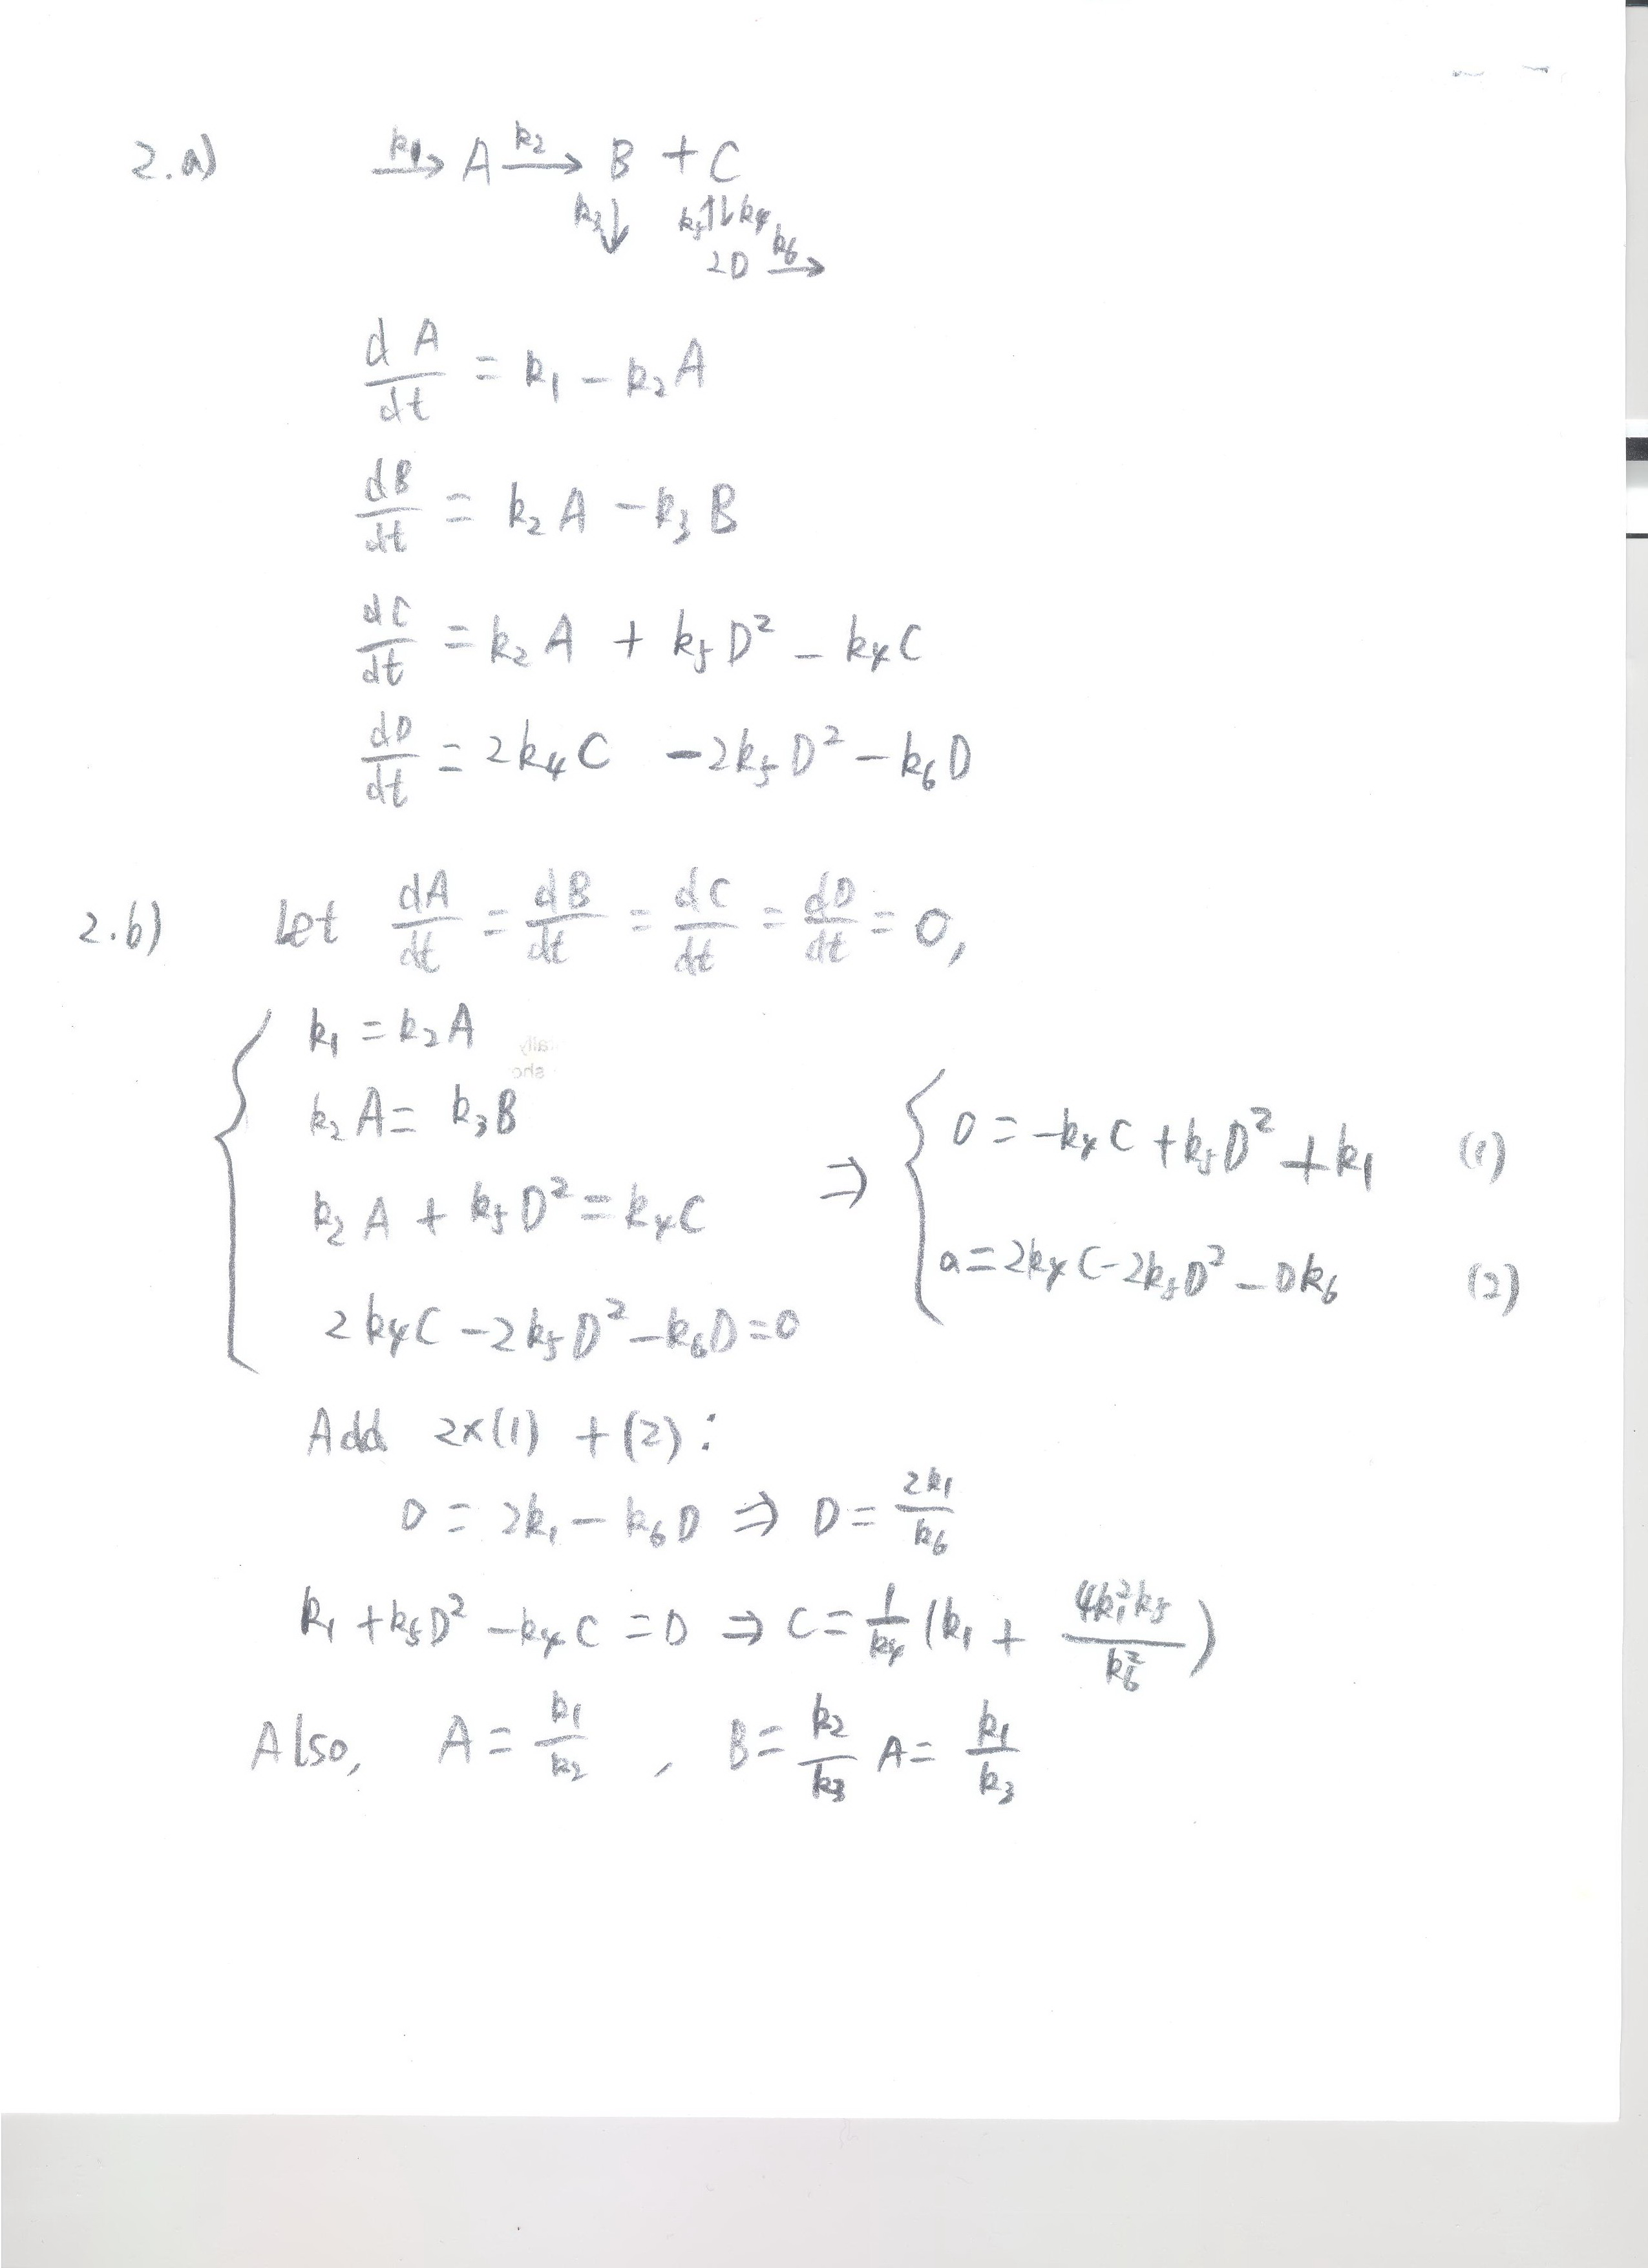 2.a) k1→ A k2→ B + C
k3↓ k5↑↓k4
2D k6→
dA/dt = k1 − k2A
dB/dt = k2A − k3B
dC/dt = k2A + k5D² − k4C
dD/dt = 2k4C − 2k5D² − k6D
2.b) Let dA/dt = dB/dt = dC/dt = dD/dt = 0,
k1 = k2A
k2A = k3B
k2A + k5D² = k4C
2k4C − 2k5D² − k6D = 0
⇒ { 0 = −k4C + k5D² + k1 (1)
0 = 2k4C − 2k5D² − Dk6 (2)
Add 2×(1) + (2):
0 = 2k1 − k6D ⇒ D = 2k1/k6
k1 + k5D² − k4C = 0 ⇒ C = 1/k4 (k1 + 4k1²k5/k6²)
Also, A = k1/k2 , B = k2/k3 A = k1/k3